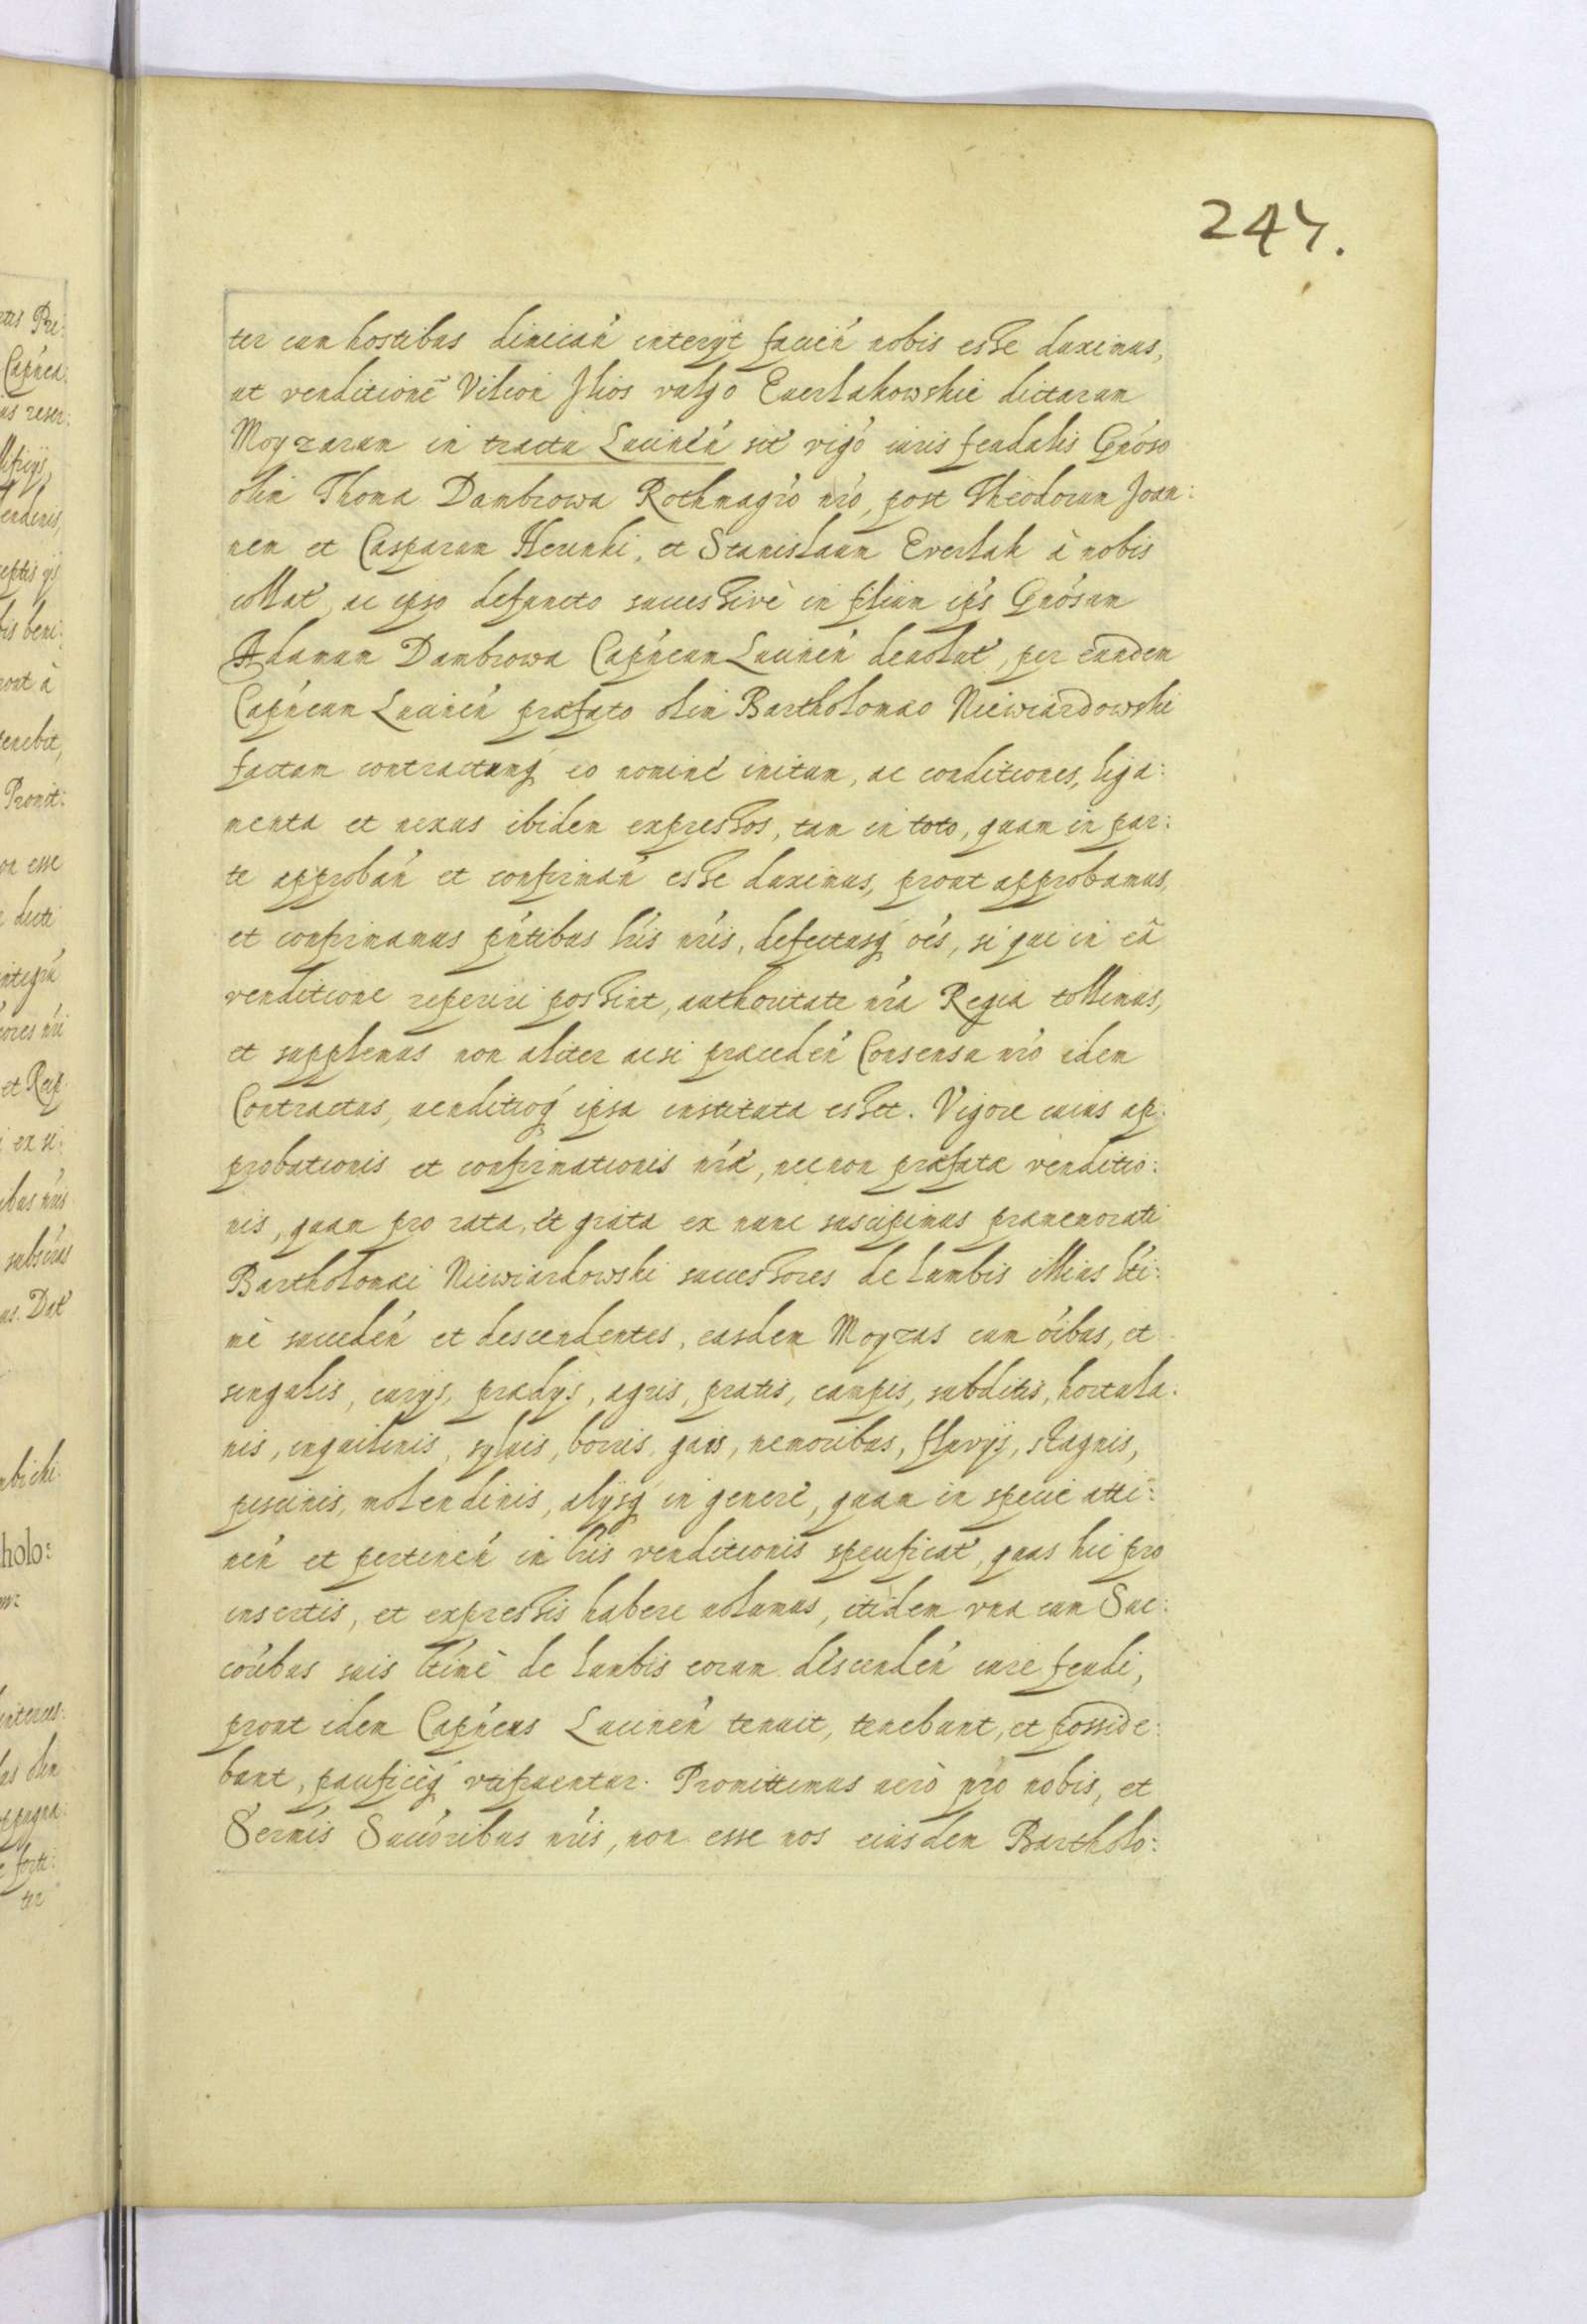 247.
ter cum hostibus dimicań interijt facień nobis esse duximus,
ut venditionē Villion Jlios vulgo Euerlakowskie dictarum
Moyzarum in tractu Lucineń sit́ rigó iuris feudalis Gnóso
olim Thoma Dambrowa Rothmagró nró, post Theodorum Joan:
nem et Casparum Herinki, et Stanislaum Everlak à nobis
collat́, ac ipso defuncto successivè in filium ipś Gnósum
Adamum Dambrowa Capńeum Lucineń deuolut́, per eundem
Capńeum Lucineń præfato olim Bartholomæo Niewiardowski
factam contractumq́ eo nominé initum, ac conditiones, liga:
menta et nexus ibidem expressos, tam in toto, quam in par:
te approbań et confirmań esse duximus, prout approbamus,
et confirmamus pńtibus lrís nrís, defectusq́ oés, si qui in eâ
venditione reperiri possint, authoritate nrá Regia tollimus,
et supplemus non aliter acsi præcedeń Consensu nró idem
Contractus, uenditioq́ ipsa instituta esset. Vigore cuius ap:
probationis et confirmationis nræ, necnon præfatæ venditio:
nis, quam pro rata, et grata ex nunc suscipimus præmemorati
Bartholomæi Niewiardowski successores de lumbis illius lti:
mè succedeń et descendentes, easdem Moyzas cum óibus, et
singulis, curijs, prædijs, agris, pratis, campis, subditis, hortula:
nis, inquilinis, syluis, borris, gais, nemoribus, fluvijs, stagnis,
piscinis, molendinis, alijsq́ in generé, quam in specie atti:
neń et pertineń in lrís venditionis specificat́, quas hic pro
insertis, et expressis habere uolumus, itidem vna cum Suc:
córibus suis ltimè de lumbis eorum descendeń iure feudi,
prout idem Capńeus Lucineń tenuit, tenebunt, et posside:
bunt, pacificéq́ vtifruentur. Promittimus uerò pro nobis, et
Sermís Succóribus nrís, non esse nos eiusdem Bartholo: